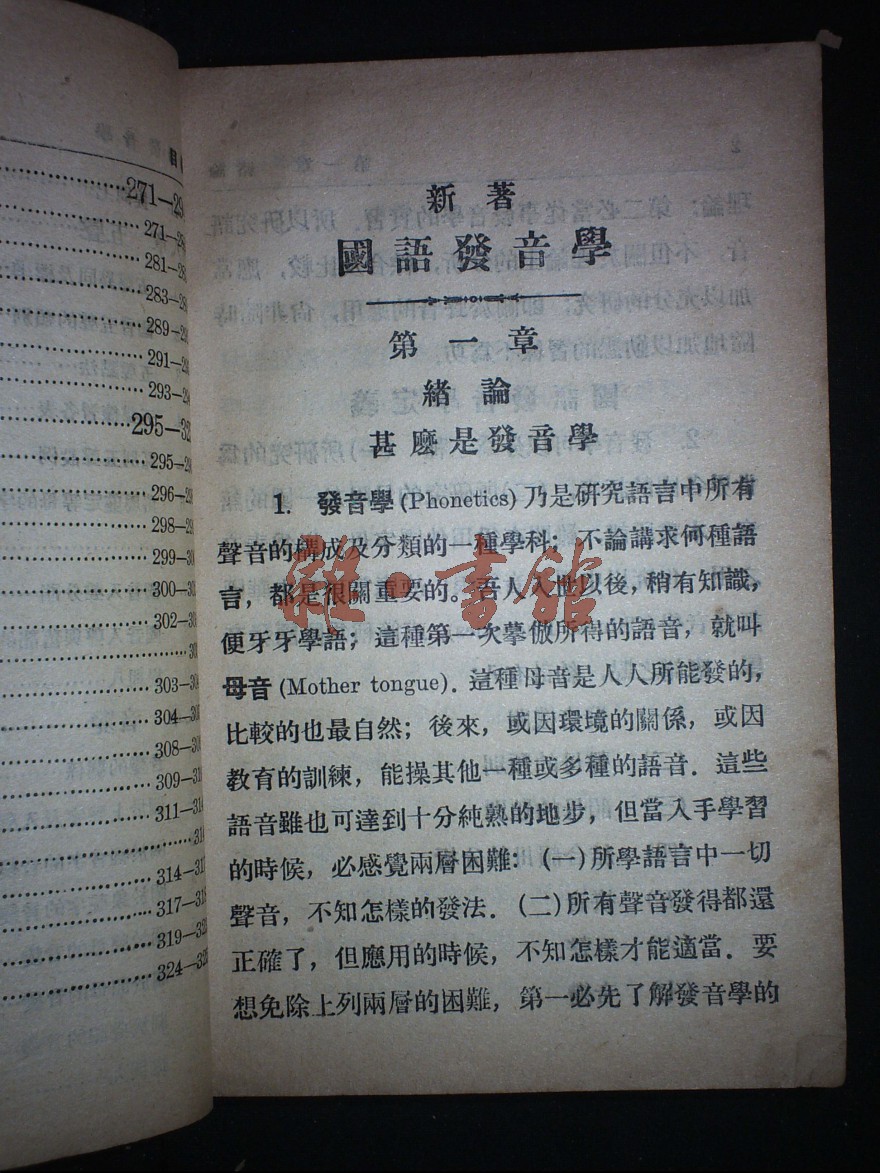 目
271—29
271—28
281—28
283—28
289—29
291—29
293—29
295—32
295—29
296—29
298—29
299—30
300—30
302—30
303—30
304—30
308—30
309—31
311—31
314—317
317—318
319—32
324—32
新著
國語發音學
第一章
緒論
甚麽是發音學
1. 發音學 (Phonetics) 乃是研究語言中所有
聲音的構成及分類的一種學科; 不論講求何種語
言, 都是很關重要的。吾人入世以後, 稍有知識,
便牙牙學語; 這種第一次摹倣所得的語音, 就叫
母音 (Mother tongue). 這種母音是人人所能發的,
比較的也最自然; 後來, 或因環境的關係, 或因
教育的訓練, 能操其他一種或多種的語音. 這些
語音雖也可達到十分純熟的地步, 但當入手學習
的時候, 必感覺兩層困難: (一) 所學語言中一切
聲音, 不知怎樣的發法. (二) 所有聲音發得都還
正確了, 但應用的時候, 不知怎樣才能適當. 要
想免除上列兩層的困難, 第一必先了解發音學的
雜·書館